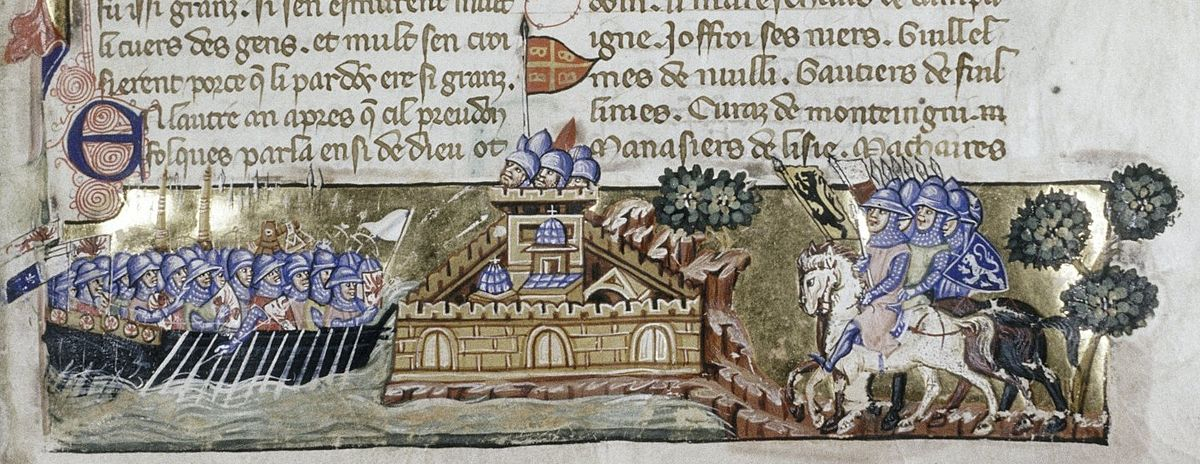 fu issi granz. si sen esmurent mult
li cuers des gens. et mult sen croi
sierent porce q̃ li pardõs ere si granz.
EN lautre an apres q̃ cil preudom
folques parla ensi de dieu ot
li mareschaus de campa
igne. Joffroi ses niers. Guillel
mes de nuilli. Gautiers de fuil
limes. Euraz de monteingni.
Manasiers de lisle. Machaires